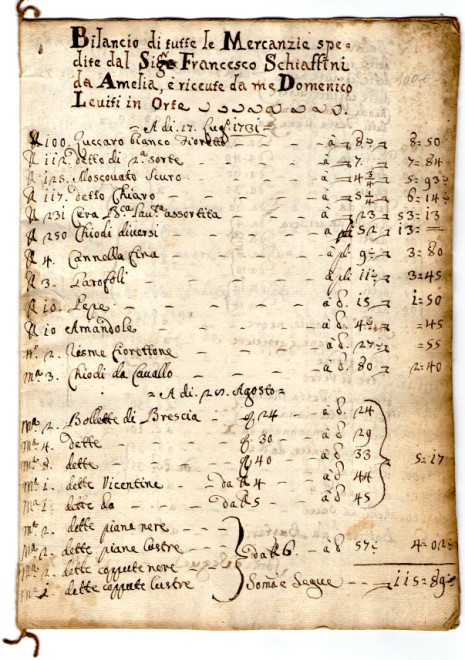 Bilancio di tutte le Mercanzie spe=
dite dal Sigre Francesco Schiaffini
da Amelia, e riceute da me Domenico
Leviti in Orte
A di. 17. Lugo 1731
100. Zuccaro bianco Fioretto - à 8½ 8=50
112. detto di 2a sorte - à 7 7=84
125. Moscovato Scuro - à 4¾ 5=93
117. detto Chiaro - à 5¼ 6=14
231 Cera assortita - à 23 53=13
250 Chiodi diversi - à 52 13=
4. Cannella fina - à 9½ 3=80
3. Garofoli - à 11½ 3=45
10. Pepe - à d. 15 1=50
10 Amandole - à d. 4½ =45
no. 2. Risme Fiorettone - à d. 27½ =55
ma. 3. Chiodi da Cavallo - à d. 80 2=40
= A di. 28. Agosto =
ma 2. Bollette di Brescia - 24 à d. 24
ma 4. dette - 30 à d. 29
ma 8. dette - 40 à d. 33 5=17
ma 1. dette Vicentine da 4 à d. 44
ma 1. dette da - da 5 à d. 45
ma 2. dette piane nere
ma 2. dette piane lustre da 6. à d 57½ 4=02½
ma 2. dette coppute nere
ma 1. dette coppute lustre Soma e Segue - 115=89½